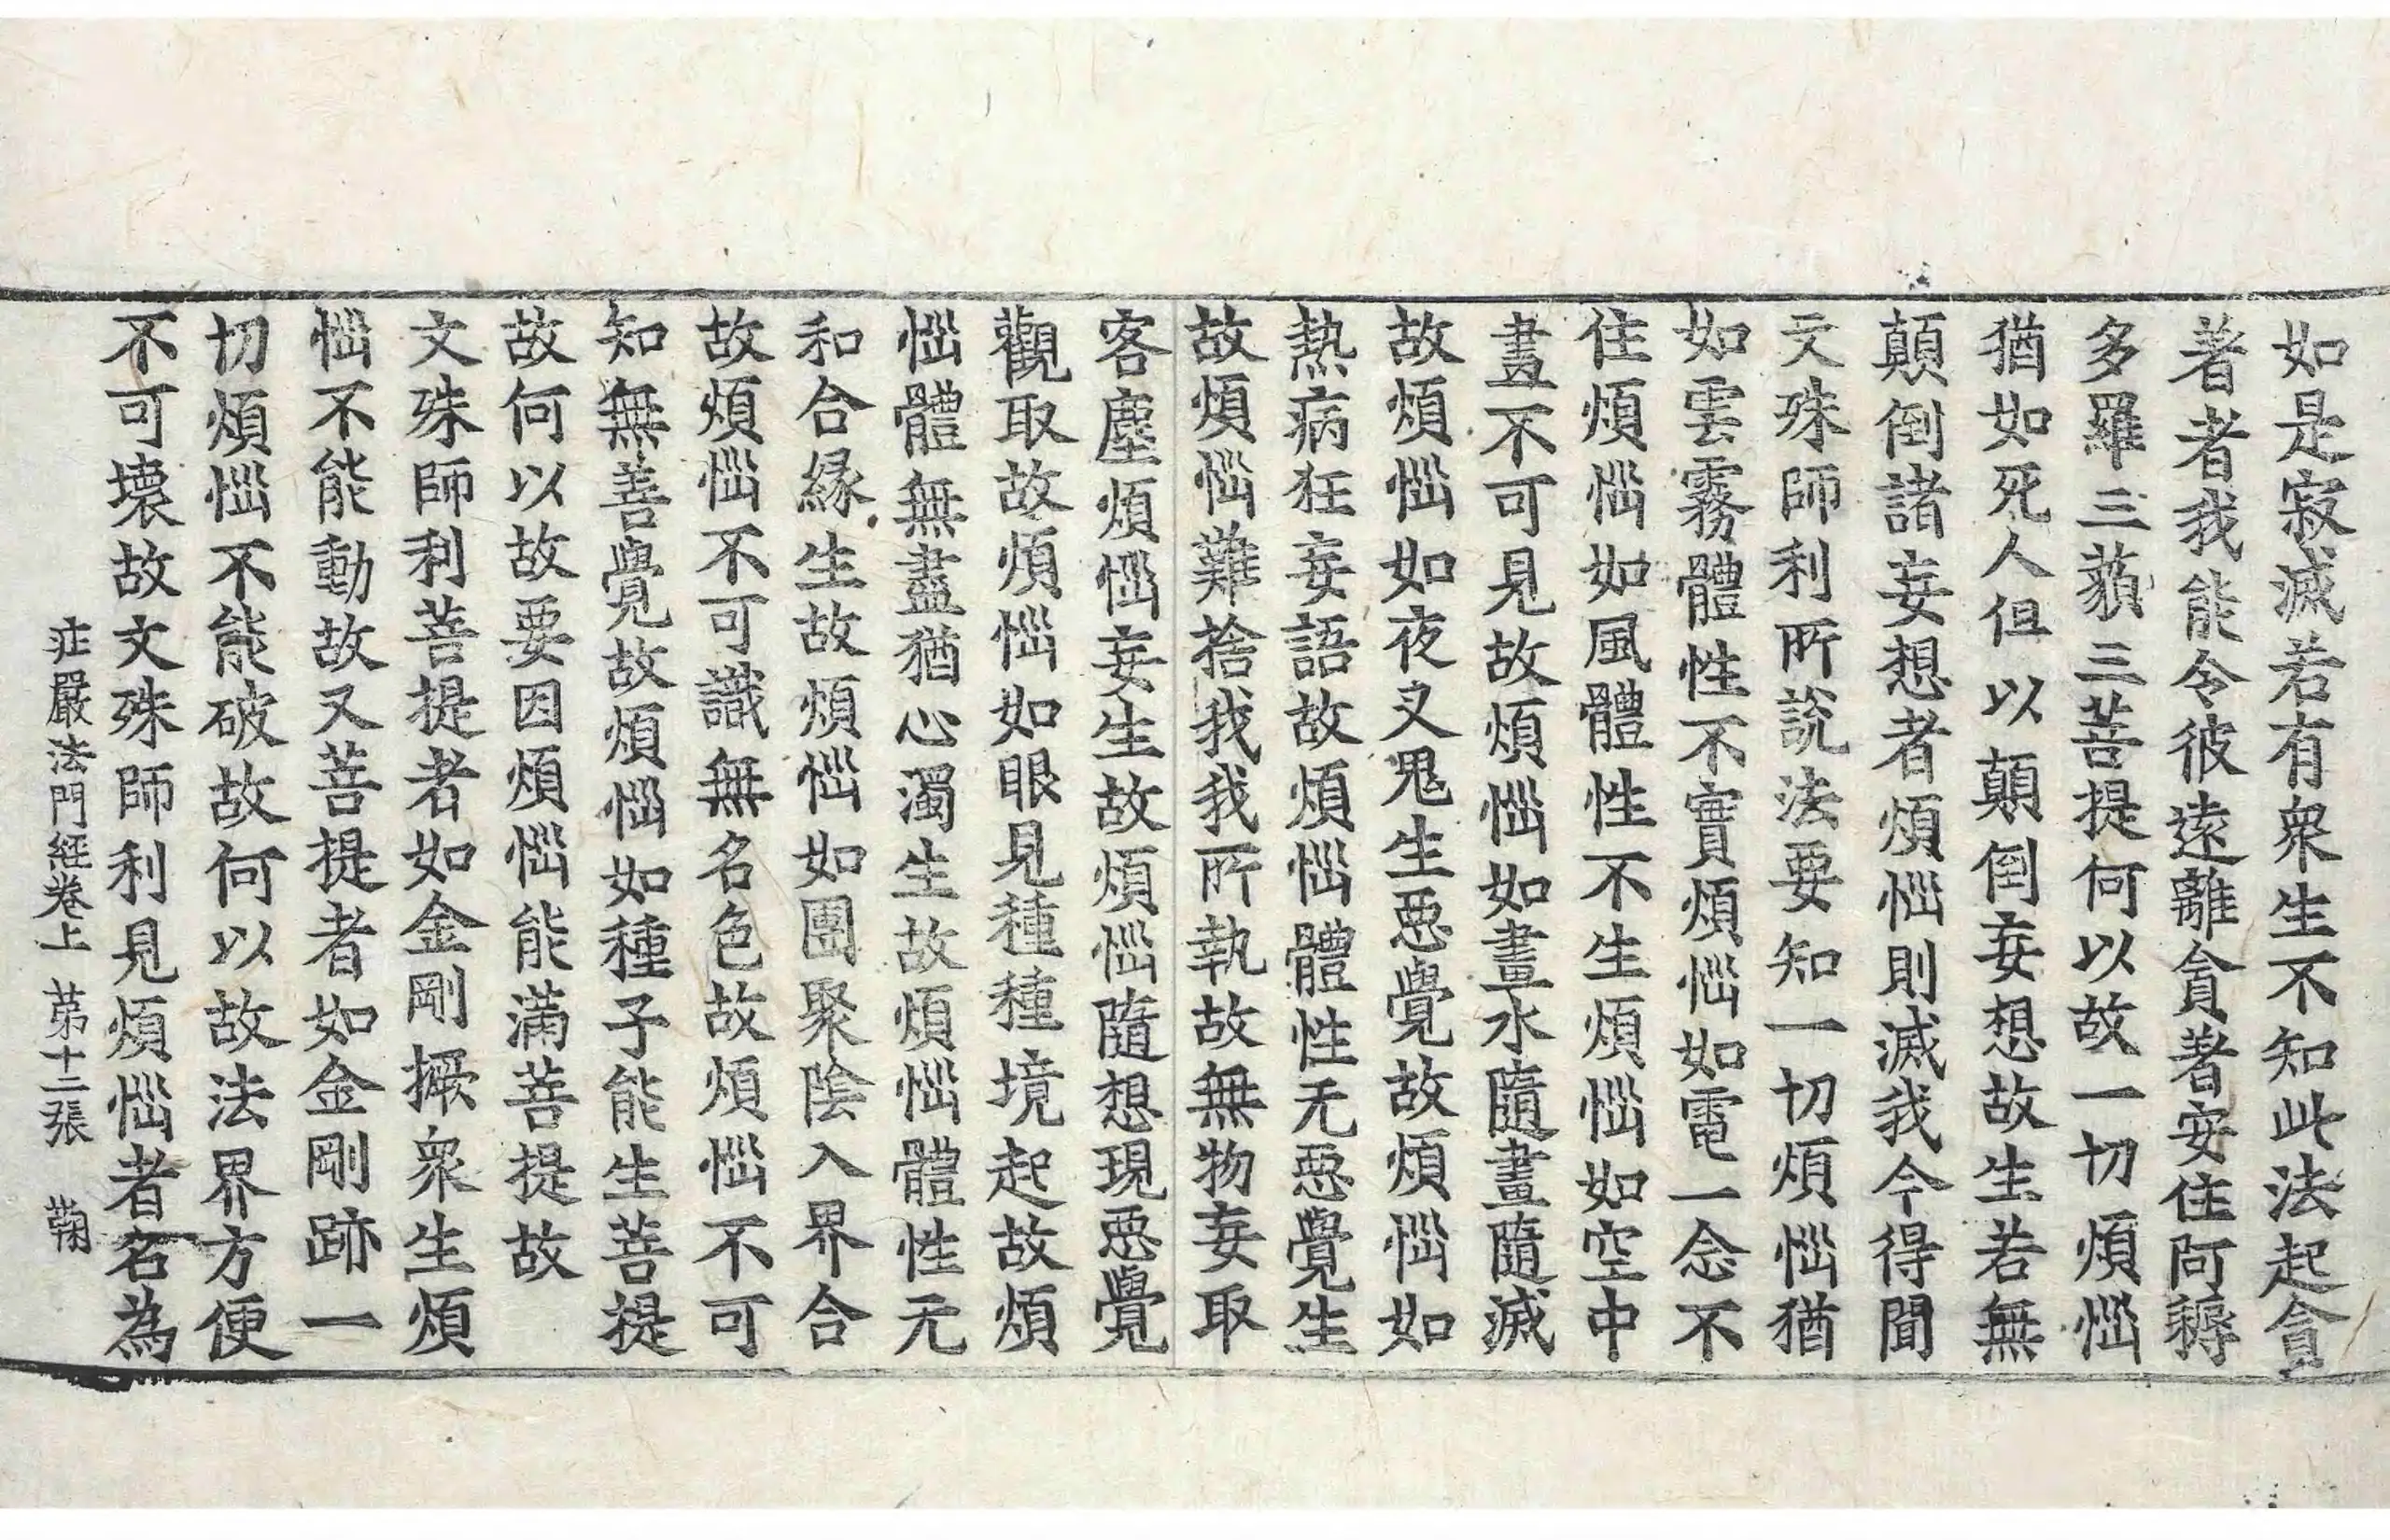 如是寂滅若有衆生不知此法起貪
著者我能令彼遠離貪著安住阿耨
多羅三藐三菩提何以故一切煩惱
猶如死人但以顛倒妄想故生若無
顛倒諸妄想者煩惱則滅我今得聞
文殊師利所說法要知一切煩惱猶
如雲霧體性不實煩惱如電一念不
住煩惱如風體性不生煩惱如空中
畫不可見故煩惱如畫水隨畫隨滅
故煩惱如夜叉鬼生惡覺故煩惱如
熱病狂妄語故煩惱體性无惡覺生
故煩惱難捨我我所執故無物妄取
客塵煩惱妄生故煩惱隨想現惡覺
觀取故煩惱如眼見種種境起故煩
惱體無盡猶心濁生故煩惱體性无
和合緣生故煩惱如團聚陰入界合
故煩惱不可識無名色故煩惱不可
知無善覺故煩惱如種子能生菩提
故何以故要因煩惱能滿菩提故
文殊師利菩提者如金剛橛衆生煩
惱不能動故又菩提者如金剛跡一
切煩惱不能破故何以故法界方便
不可壞故文殊師利見煩惱者名為
庄嚴法門經卷上 第十二張 鞠